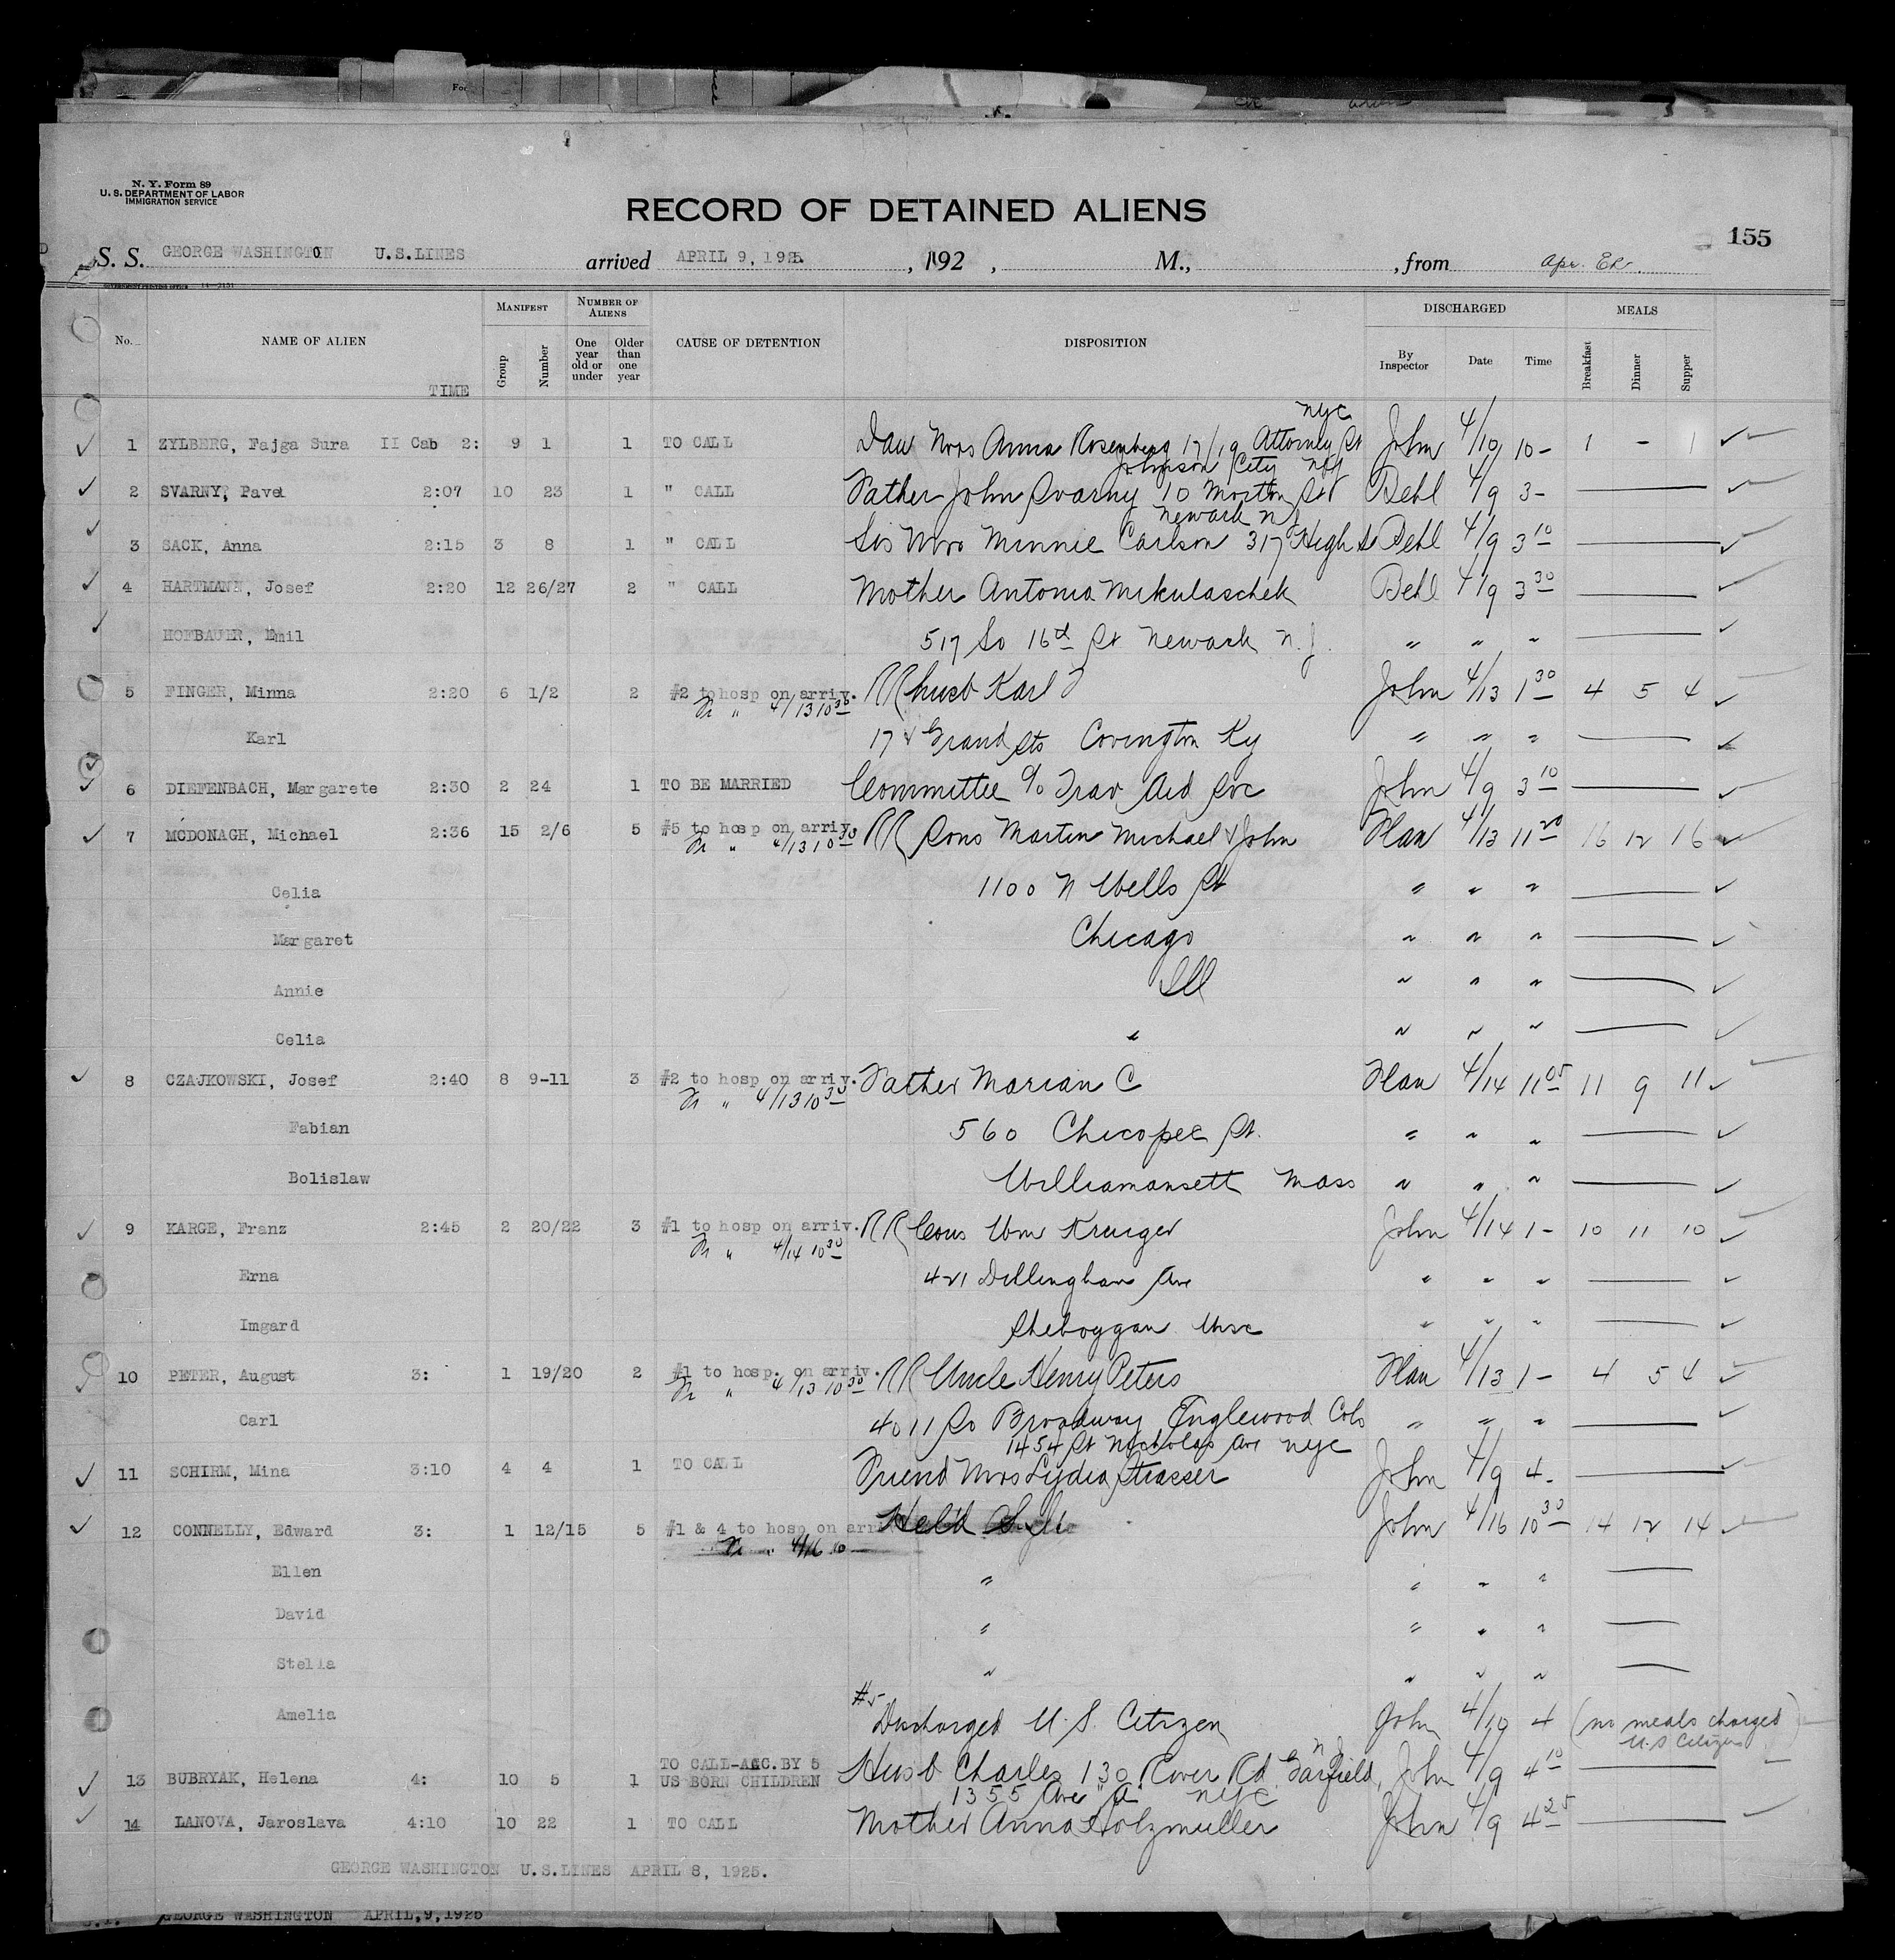 N. Y. Form 89
U. S. DEPARTMENT OF LABOR
IMMIGRATION SERVICE
RECORD OF DETAINED ALIENS
155
S. S. GEORGE WASHINGTON U.S.LINES arrived APRIL 9, 1925. , 192 , M., , from Apr.
14—2131
No. NAME OF ALIEN TIME MANIFEST Group Number NUMBER OF ALIENS One year old or under Older than one year CAUSE OF DETENTION DISPOSITION DISCHARGED By Inspector Date Time MEALS Breakfast Dinner Supper
nyc
1 ZYLBERG, Fajga Sura II Cab 2: 9 1 1 TO CALL Dau Mrs Anna Rosenberg 17/19 Attorney St John 4/10 10 - 1 - 1
Johnson City
2 SVARNY, Pavel 2:07 10 23 1 " CALL Father John Svarny 10 Morton St Behl 4/9 3-
Newark n j
3 SACK, Anna 2:15 3 8 1 " CALL Sis Mrs Minnie Carlson 317 High St Behl 4/9 3 10
4 HARTMANN, Josef 2:20 12 26/27 2 " CALL Mother Antonia Mikulaschek Behl 4/9 3 30
HOFBAUER, Emil 517 So 16th St Newark N.J. " " "
5 FINGER, Minna 2:20 6 1/2 2 #2 to hosp on arriv. RR husb Karl John 4/13 1 30 4 5 4
Fr " 4/13 10 30
Karl 17 & Grand Sts Covington Ky " " "
6 DIEFENBACH, Margarete 2:30 2 24 1 TO BE MARRIED Committee c/o Trav Aid Soc John 4/9 3 10
7 MCDONAGH, Michael 2:36 15 2/6 5 #5 to hosp on arriv. RR Sons Martin Michael & John Flan 4/13 11 20 16 12 16
Fr " 4/13 10 30
Celia 1100 N Wells St " " "
Margaret Chicago " " "
Annie Ill " " "
Celia " " " "
8 CZAJKOWSKI, Josef 2:40 8 9-11 3 #2 to hosp on arriv. Father Marian C Flan 4/14 11 05 11 9 11
Fr " 4/13 10 30
Fabian 560 Chicopee St. " " "
Bolislaw Williamansett Mass " " "
9 KARGE, Franz 2:45 2 20/22 3 #1 to hosp on arriv. RR Cous Wm Krueger John 4/14 1- 10 11 10
Fr " 4/14 10 30
Erna 421 Dillingham Ave " " "
Imgard Sheboygan Wisc " " "
10 PETER, August 3: 1 19/20 2 #1 to hosp. on arriv. RR Uncle Henry Peters Flan 4/13 1 - 4 5 4
Fr " 4/13 10 30
Carl 4011 So Broadway Englewood Colo " " "
1454 St Nicholas Ave nyc
11 SCHIRM, Mina 3:10 4 4 1 TO CALL Friend Mrs Lydia Strasser John 4/9 4-
12 CONNELLY, Edward 3: 1 12/15 5 #1 & 4 to hosp on arriv Held John 4/16 10 30 14 12 14
Fr " 4/16 10
Ellen " " " "
David " " " "
Stella " " " "
#5
Amelia Discharged U.S. Citizen John 4/10 4 (no meals charged
U.S Citizen)
TO CALL-ACC.BY 5 N J
13 BUBRYAK, Helena 4: 10 5 1 US BORN CHILDREN Husb Charles 130 River Rd Garfield, John 4/9 4 10
1355 Ave "A" nyc
14 LANOVA, Jaroslava 4:10 10 22 1 TO CALL Mother Anna Holzmuller John 4/9 4 25
GEORGE WASHINGTON U.S.LINES APRIL 8, 1925.
GEORGE WASHINGTON APRIL,9,1925